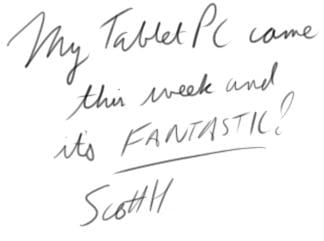 My Tablet PC came
this week and
it's FANTASTIC!
ScottH